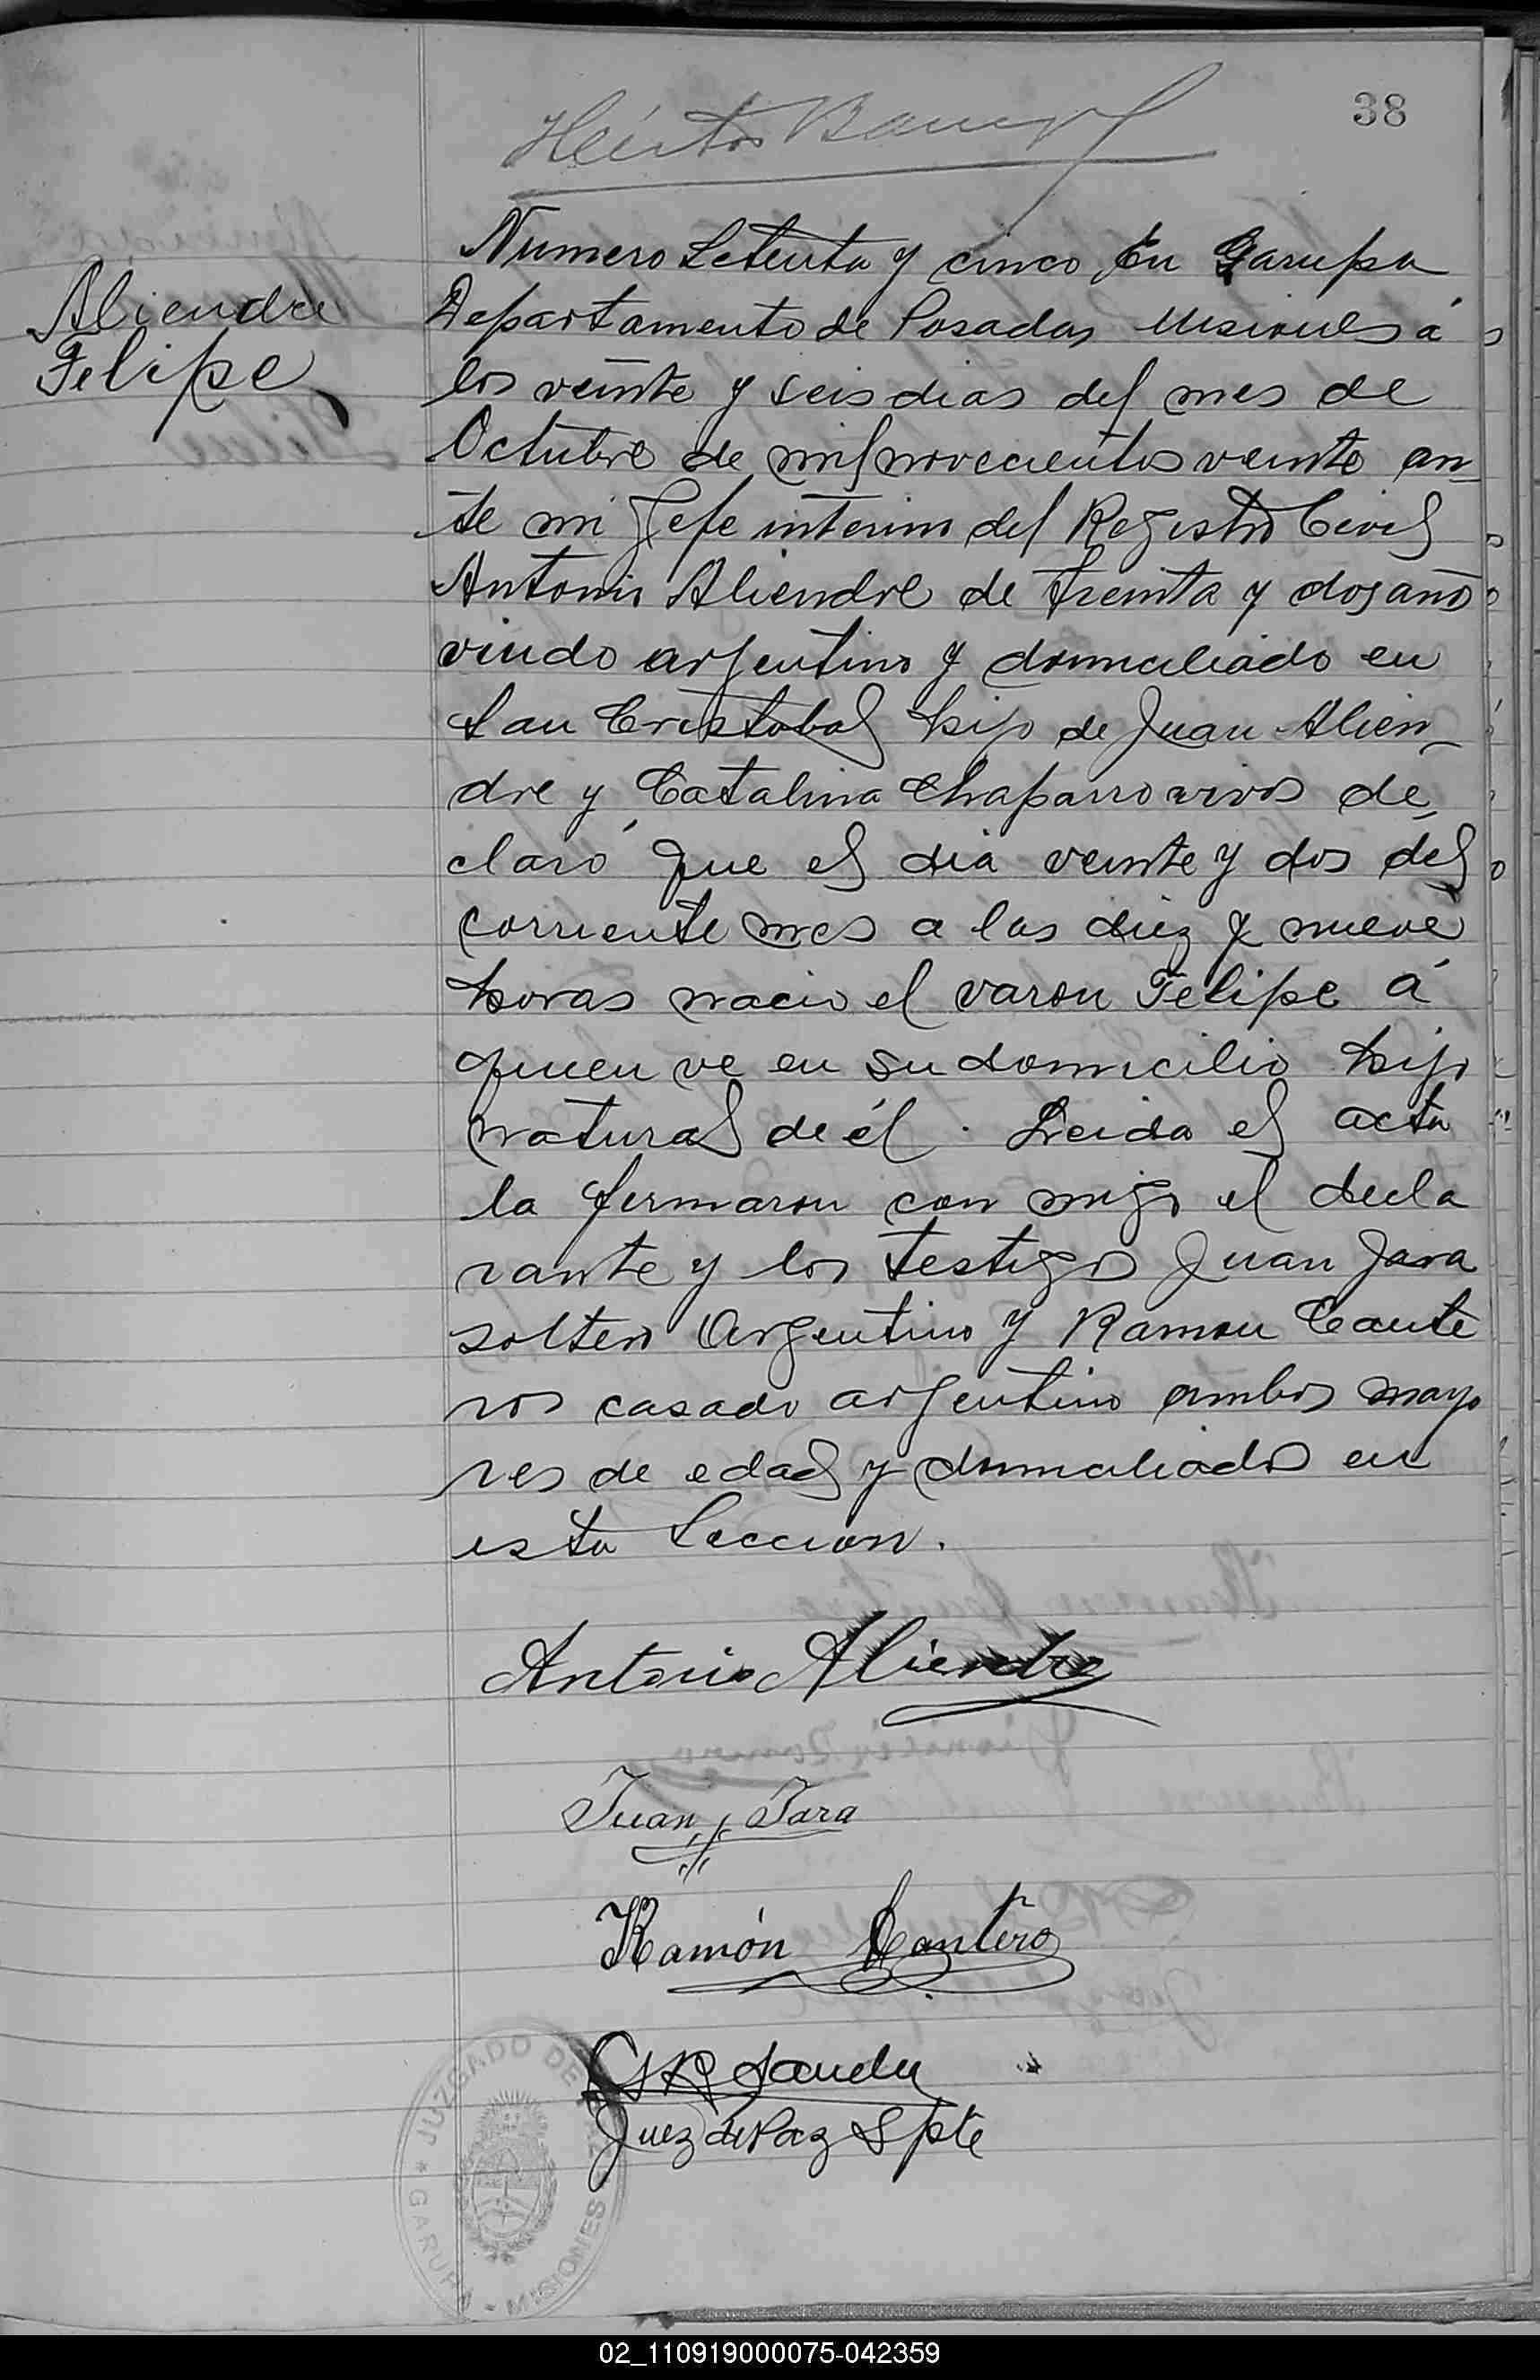 38
Héctor
Aliendre
Felipe
Numero Setenta y cinco En Garupa
Departamento de Posadas Misiones á
los veinte y seis dias del mes de
Octubre de mil novecientos veinte an-
te mi Jefe interino del Registro Civil
Antonio Aliendre de treinta y dos años
viudo argentino y domiciliado en
San Cristobal hijo de Juan Alien-
dre y Catalina Chaparro vivos de-
claró que el dia veinte y dos del
corriente mes a las diez y nueve
horas nacio el varon Felipe á
quien ve en su domicilio hijo
natural de él. Leida el acta
la firmaron con migo el decla
rante y los testigos Juan Jara
soltero Argentino y Ramon Cante
ros casado argentino ambos mayo
res de edad y domiciliados en
esta Seccion.
Antonio Aliendre
Juan Jara
Ramón Cantero
Juez de Paz Spte
JUZGADO DE
GARUPA - MISIONES
02_110919000075-042359